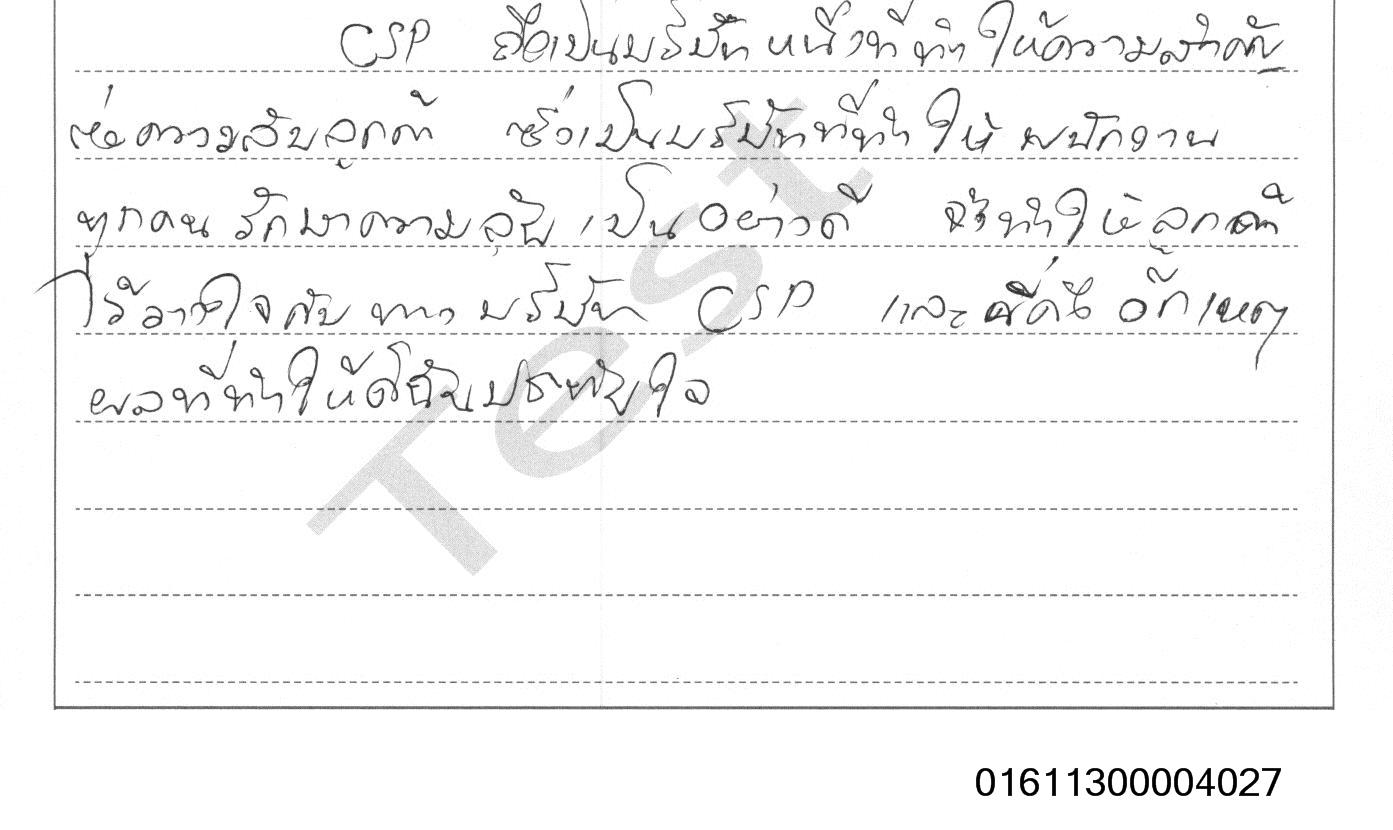 CSP ถือเป็นบริษัทหนึ่งที่ทำให้ความสำคัญ
ต่อความลับลูกค้า ซึ่งเป็นบริษัทที่ทำให้พนักงาน
ทุกคนรักษาความลับเป็นอย่างดี จึงทำให้ลูกค้า
ไว้วางใจกับทางบริษัท CSP และนี่คืออีกเหตุ
ผลที่ทำให้ดิฉันประทับใจ
Test
01611300004027